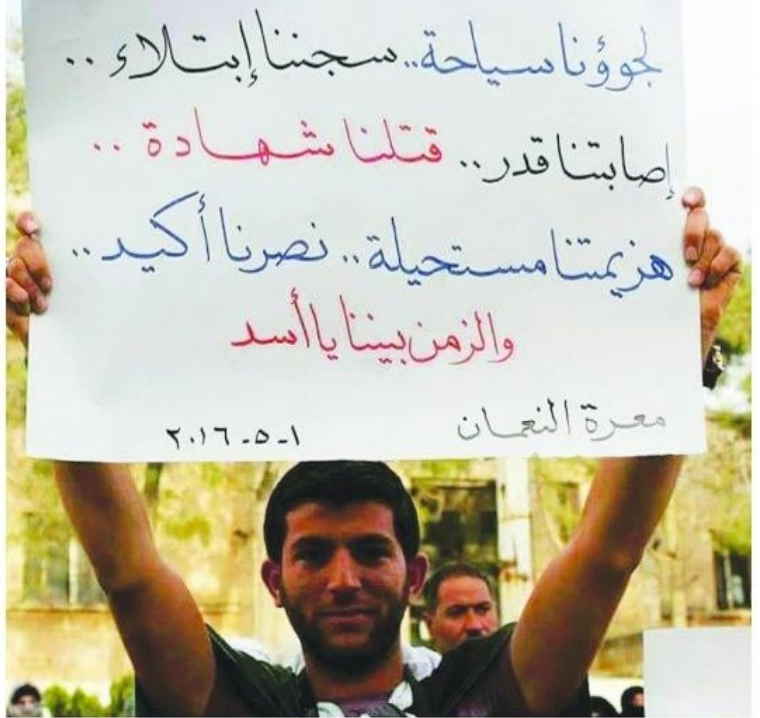 لجوؤنا سياحة.. سجننا إبتلاء..
إصابتنا قدر.. قتلنا شهادة..
هزيمتنا مستحيلة.. نصرنا أكيد..
والزمن بيننا يا أسد
معرة النعمان ١-٥-٢٠١٦